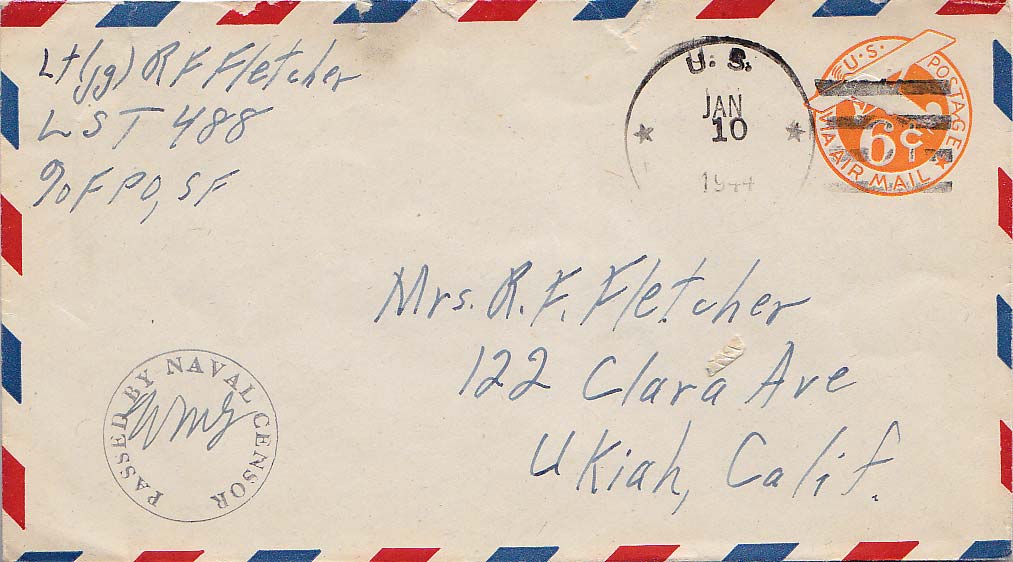 Lt (jg) R F Fletcher
LST 488
c/o FPO, SF
U. S.
JAN
10
1944
U.S. POSTAGE
6¢
VIA AIR MAIL
Mrs. R. F. Fletcher
122 Clara Ave
Ukiah, Calif.
PASSED BY NAVAL CENSOR